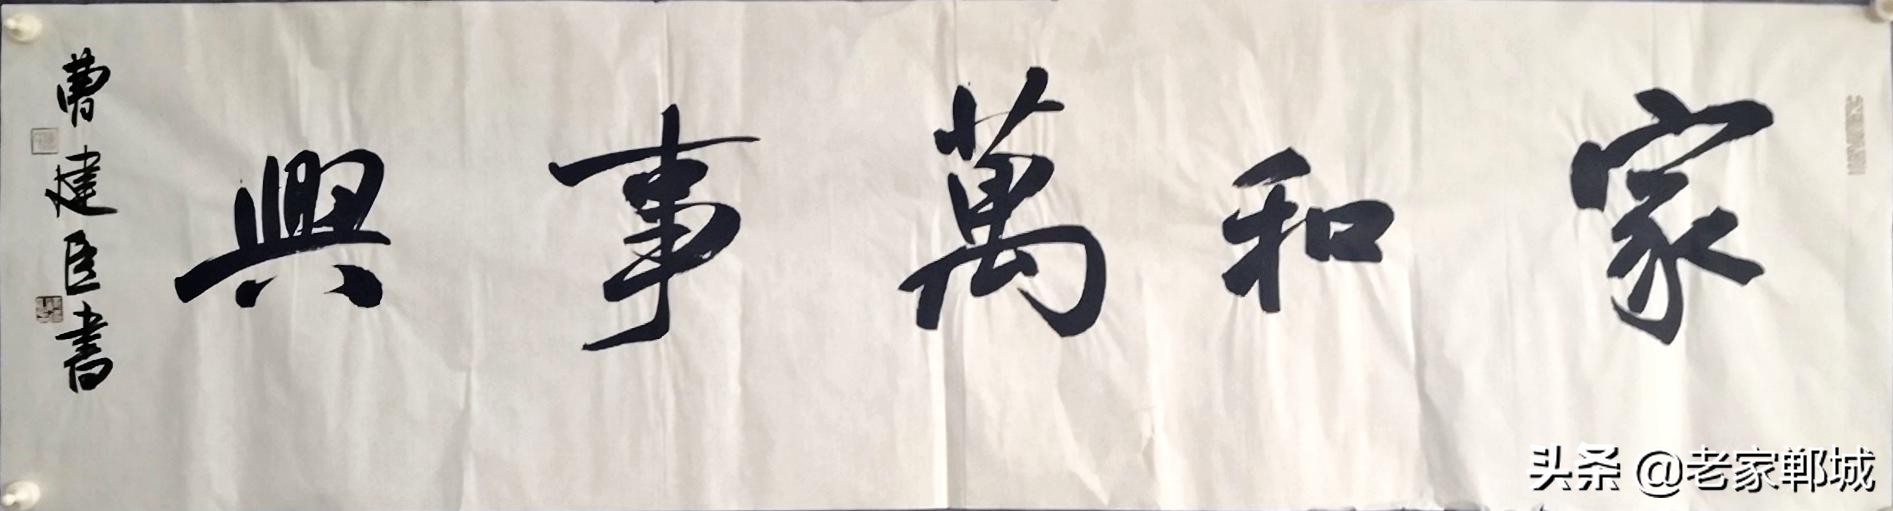 家和萬事興
曹建臣書
头条 @老家郸城